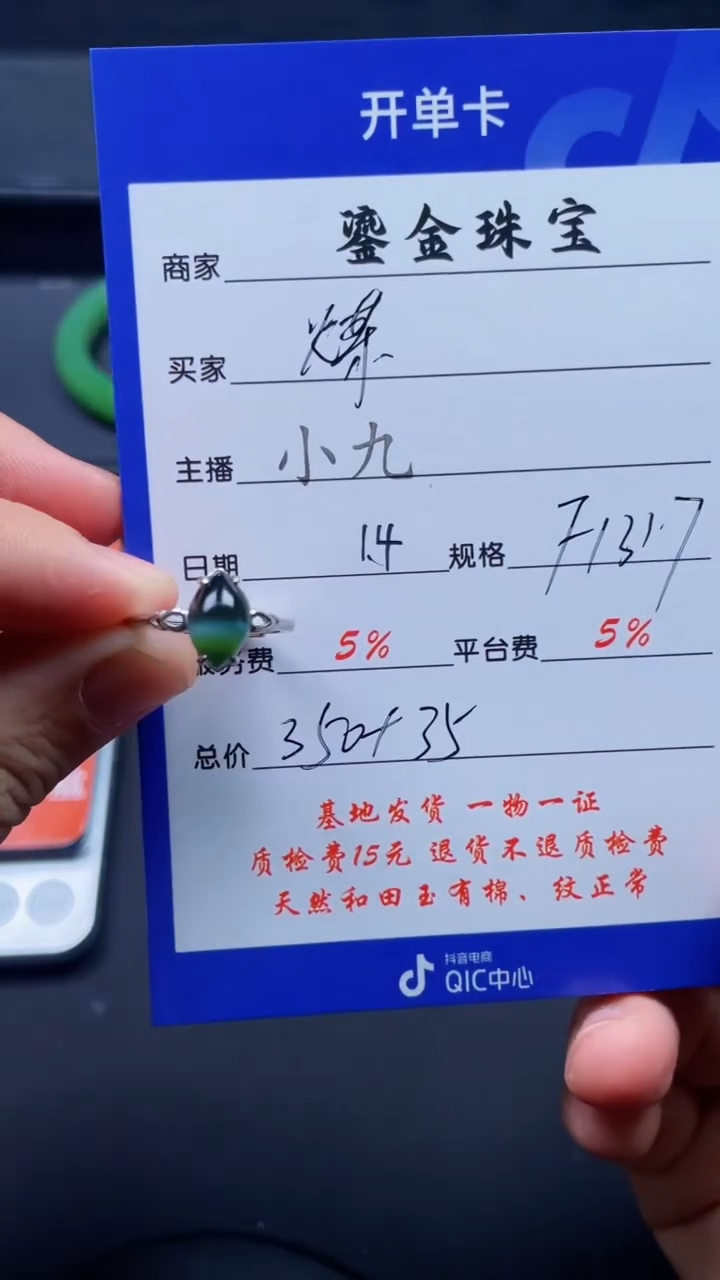 开单卡
商家 鎏金珠宝
买家
主播 小九
日期 1.4 规格
服务费 5% 平台费 5%
总价 350+35
基地发货 一物一证
质检费15元 退货不退质检费
天然和田玉有棉、纹正常
抖音电商
QIC中心